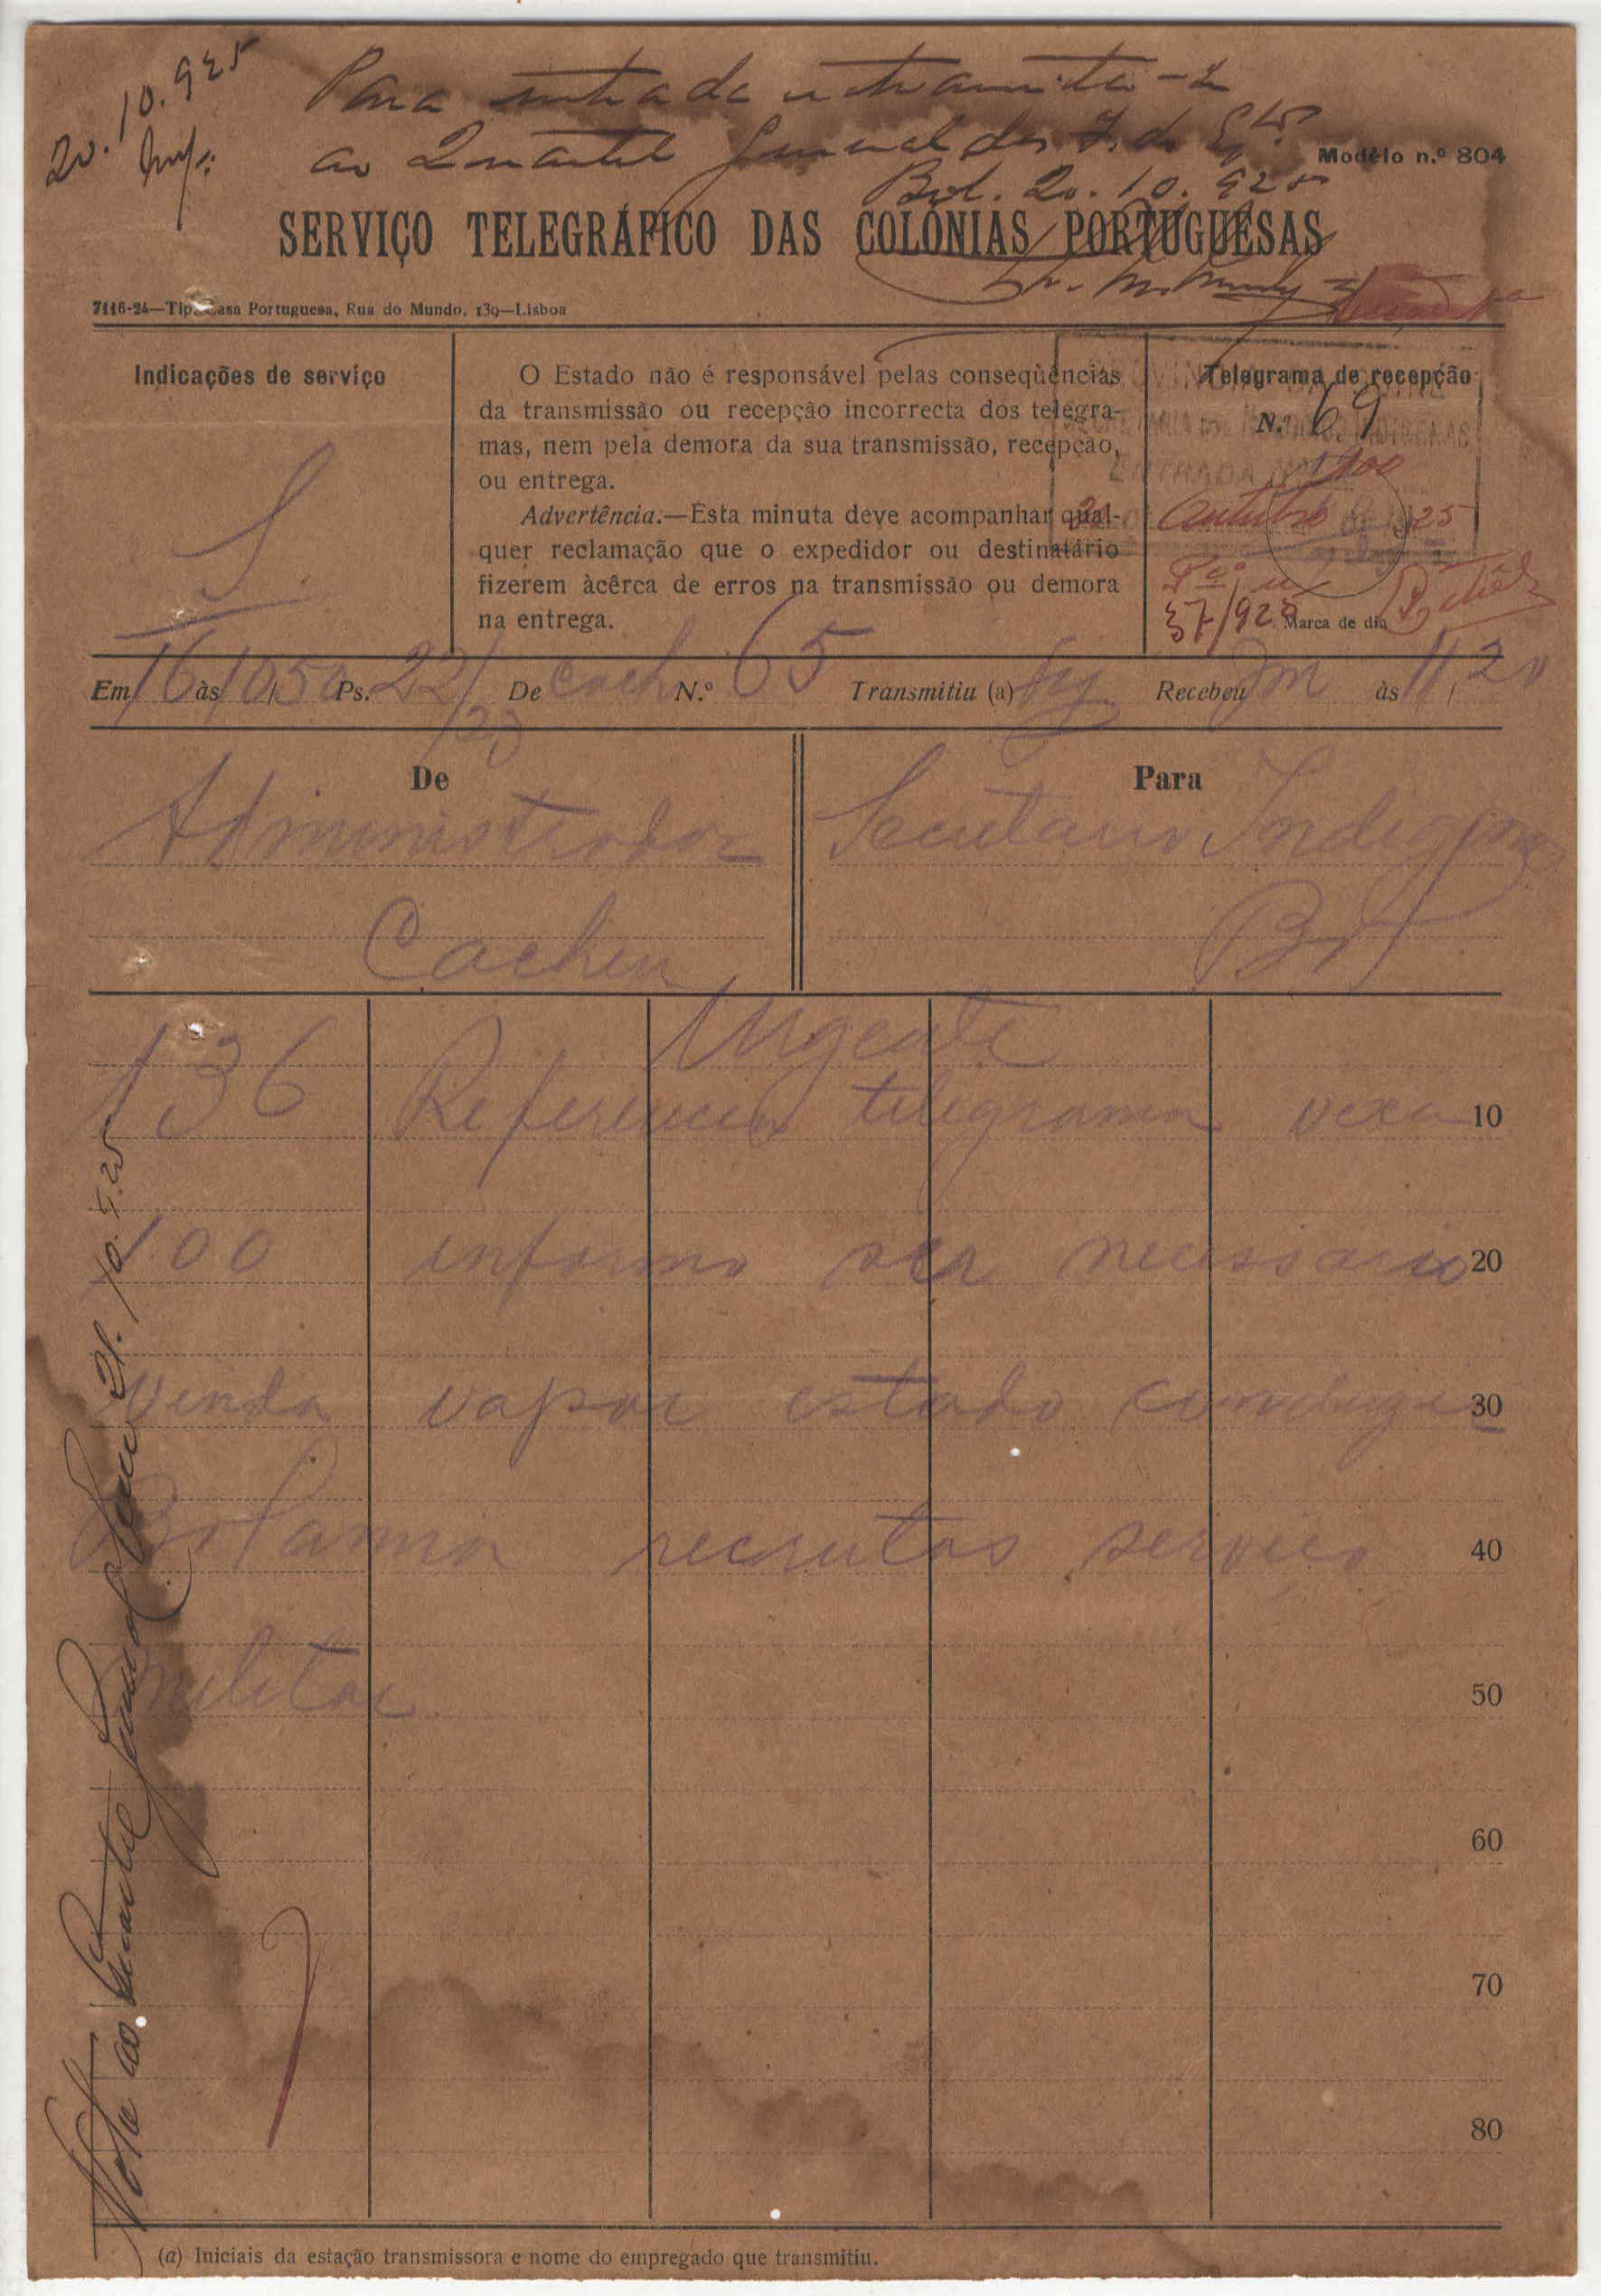 20.10.925
Para entrada e transmita-se
ao Quartel General
Bol. 20.10.925
Modêlo n.º 804
SERVIÇO TELEGRÁFICO DAS COLÓNIAS PORTUGUESAS
7116-24—Tip. Casa Portuguesa, Rua do Mundo, 139—Lisboa
Indicações de serviço
S.
O Estado não é responsável pelas conseqùências
da transmissão ou recepção incorrecta dos telegra-
mas, nem pela demora da sua transmissão, recepção,
ou entrega.
Advertência.—Esta minuta deve acompanhar qual-
quer reclamação que o expedidor ou destinatário
fizerem àcêrca de erros na transmissão ou demora
na entrega.
Telegrama de recepção
N.º 69
SECRETARIA DOS NEGOCIOS INDIGENAS
ENTRADA N.º 1200
20 Outubro DE 1925
37/925
Marca de dia
Em 16 às 1050 Ps. 22/ De Cach N.º 65 Transmitiu (a) Recebeu às 11/20
De
Administrador
Cacheu
Para
Secretario Indigenas
Urgente
136 Referencia telegrama vexa 10
100 informo ser necessario 20
venda vapor estado conduzir 30
Bolama recrutas serviço 40
militar 50
60
70
80
Nota ao Quartel General 21.10.925
(a) Iniciais da estação transmissora e nome do empregado que transmitiu.